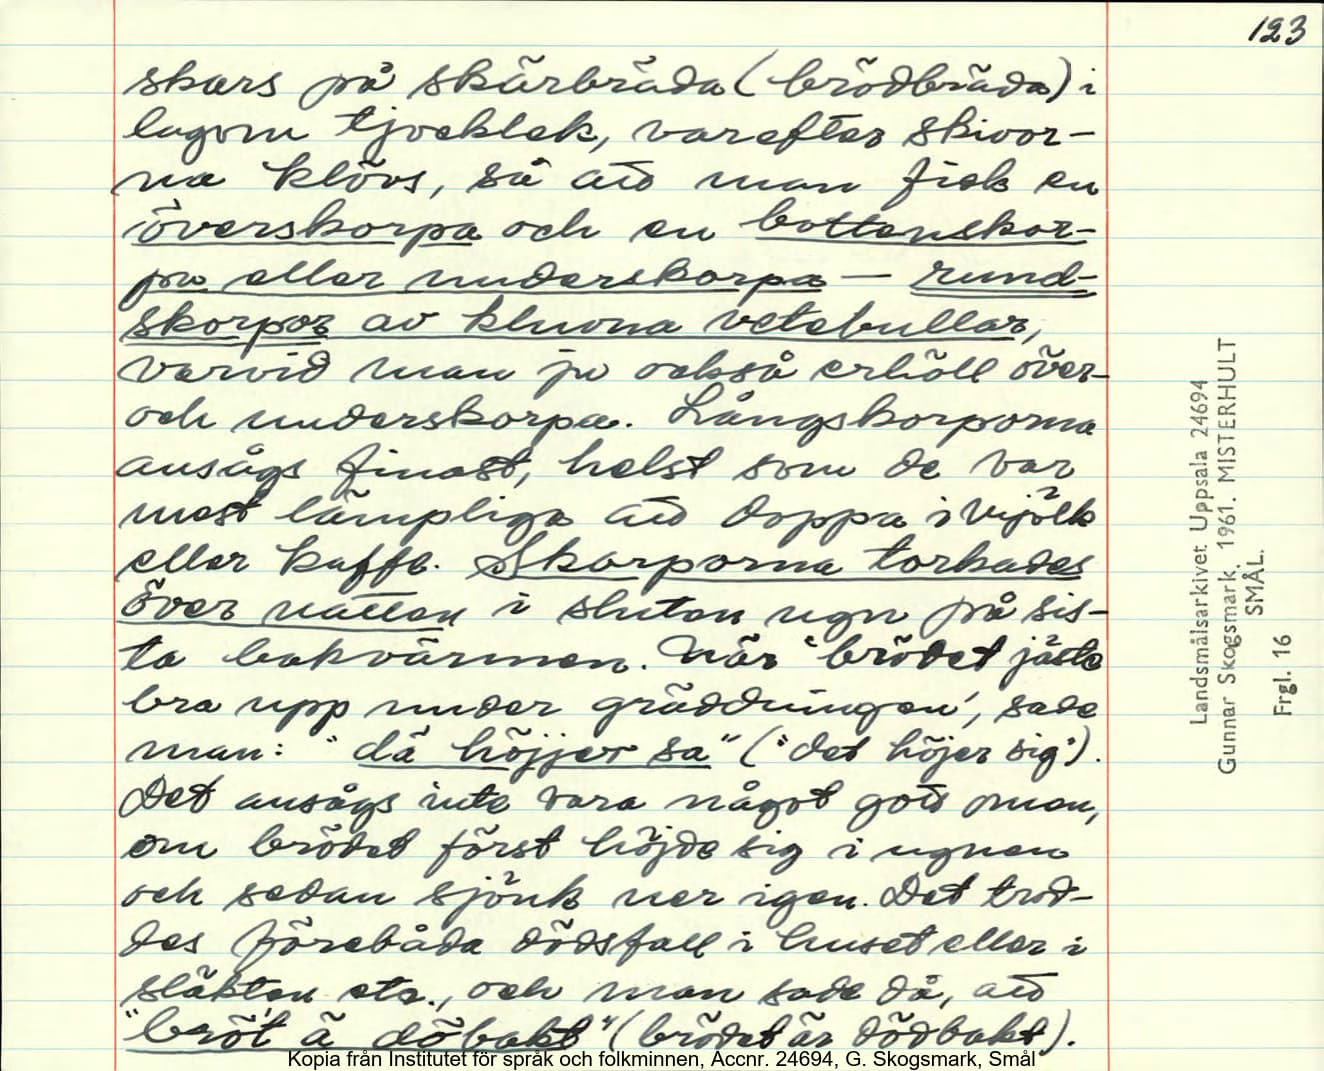 123
skars på skärbräda (brödbräda) i
lagom tjocklek, varefter skivor-
na klövs, så att man fick en
överskorpa och en bottenskor-
pa eller underskorpa — rund-
skorpor av kluvna vetebullar,
varvid man ju också erhöll över-
och underskorpa. Långskorporna
ansågs finast, helst som de var
mest lämpliga att doppa i mjölk
eller kaffe. Skorporna torkades
över natten i sluten ugn på sis-
ta bakvärmen. När "brödet jäste
bra upp under gräddningen", sade
man: "dä höjjer sa" ("det höjer sig").
Det ansågs inte vara något gott omen,
om brödet först höjde sig i ugnen
och sedan sjönk ner igen. Det trod-
des förebåda dödsfall i huset eller i
släkten etc., och man sade då, att
"bröt ä döbakt" (brödet är dödbakt).
Landsmålsarkivet Uppsala 24694
Gunnar Skogsmark, 1961. MISTERHULT
SMÅL.
Frgl. 16
Kopia från Institutet för språk och folkminnen, Accnr. 24694, G. Skogsmark, Smål